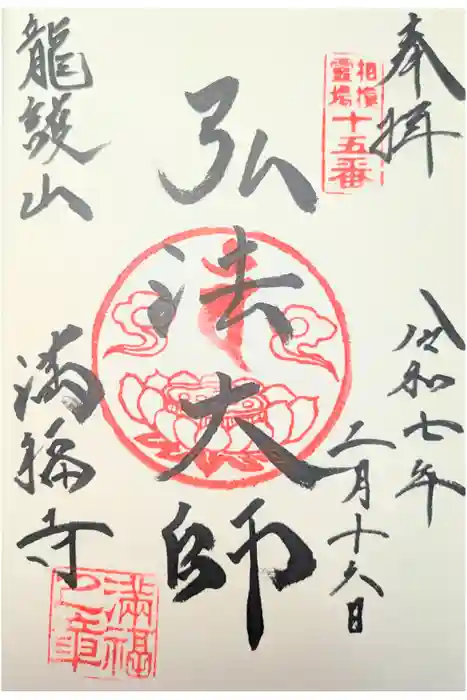 奉拝
相模
靈場
十五番
令和七年
二月十六日
弘法大師
龍護山
満福寺
滿福